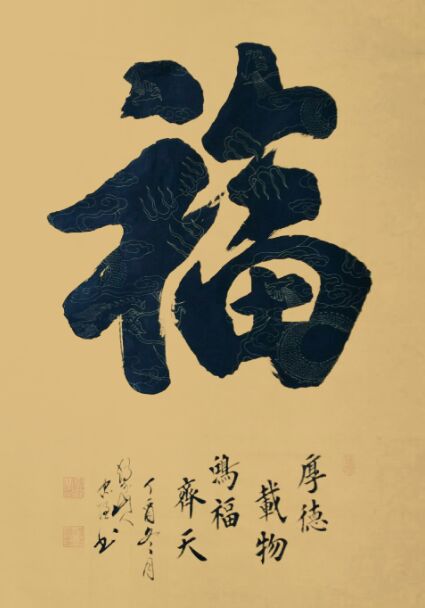 福
厚德
載物
鴻福
齊天
丁酉冬月
書